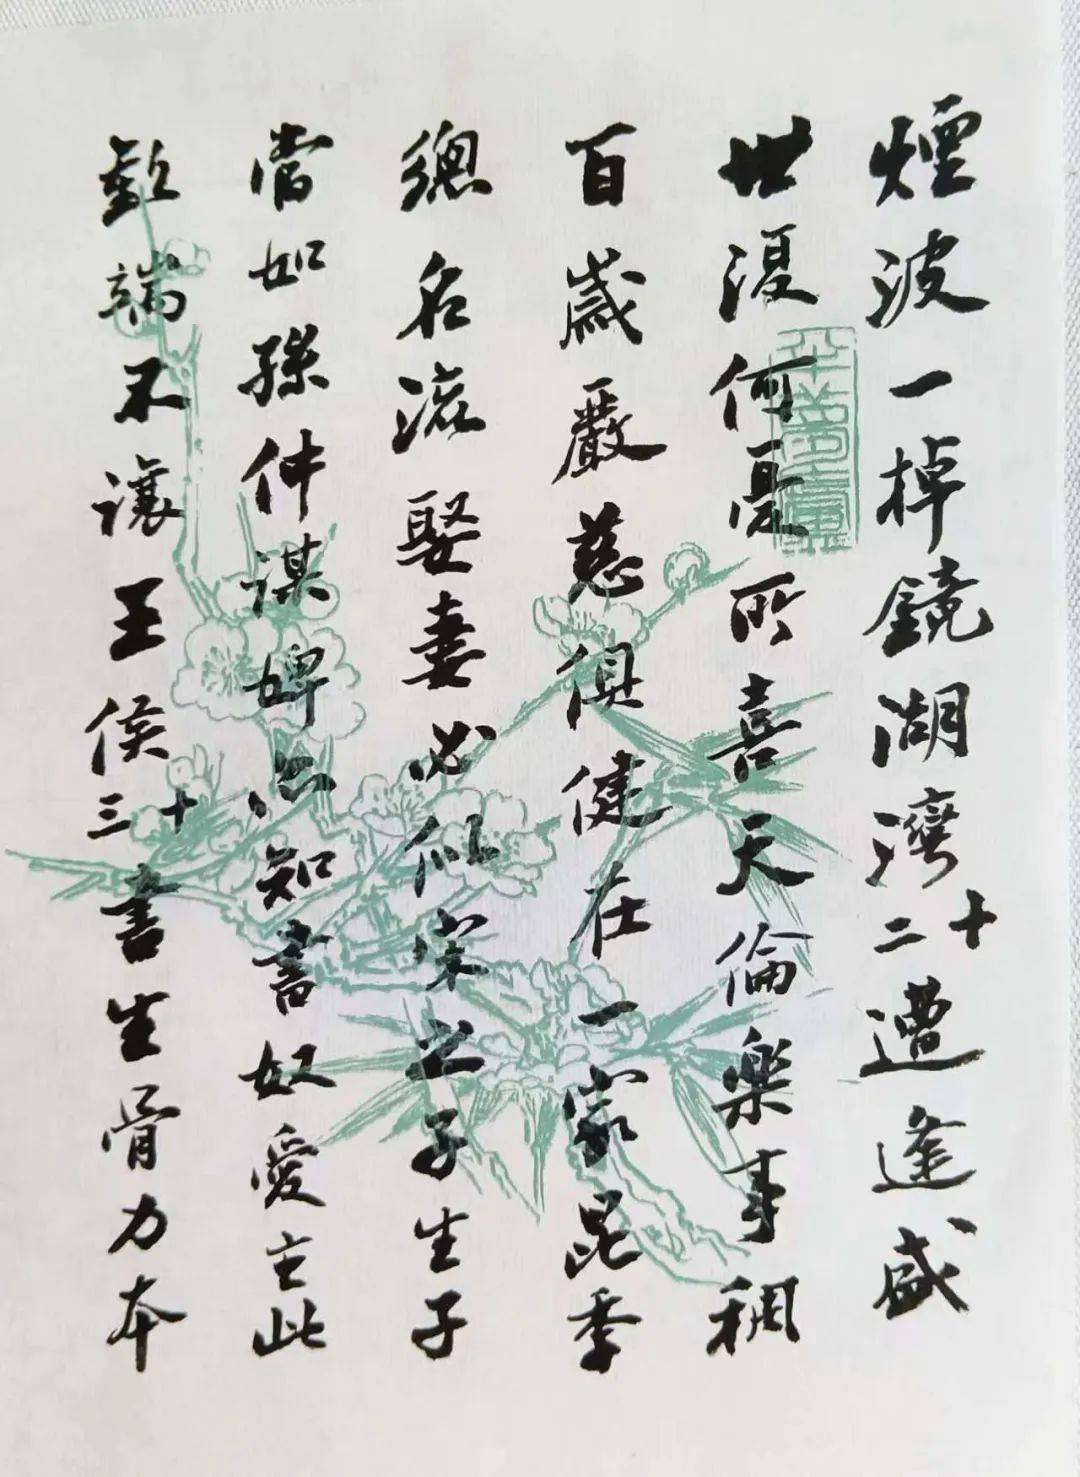 煙波一掉鏡湖湾十二遭逢盛
世復何憂所喜天倫樂事稠
百歲嚴慈俱健在一家昆季
總名流娶妻必似宋之子生子
當如孫仲謀婢亦知書奴愛主此
歡端不讓王侯三十書生骨力本